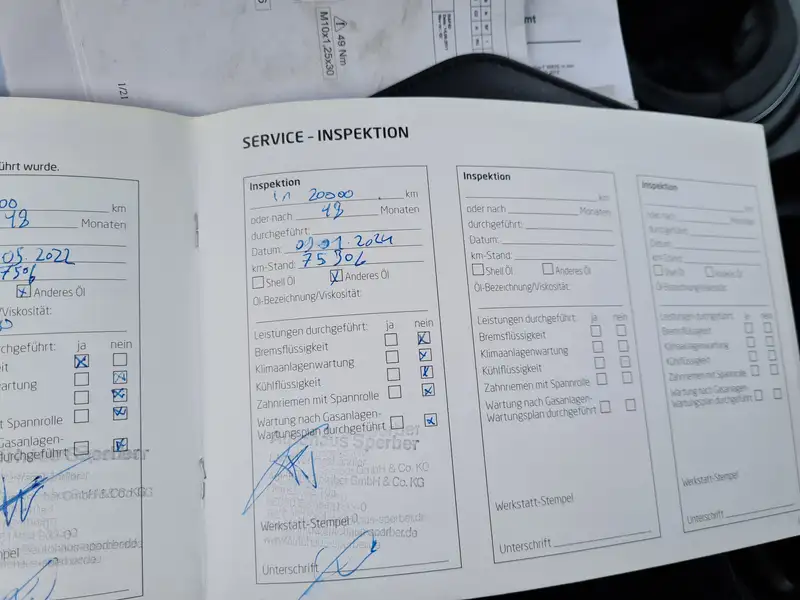 M10x1,25x30
49 Nm
1/21
mt
führt wurde.
00 km
48 Monaten
05.2022
Anderes Öl
/Viskosität:
chgeführt: ja nein
eit
wartung
mit Spannrolle
Gasanlagen-
durchgeführt:
pel
SERVICE - INSPEKTION
Inspektion
in 20000 km
oder nach 48 Monaten
durchgeführt:
Datum: 09.01.2024
km-Stand: 75906
Shell Öl Anderes Öl
Öl-Bezeichnung/Viskosität:
Leistungen durchgeführt: ja nein
Bremsflüssigkeit
Klimaanlagenwartung
Kühlflüssigkeit
Zahnriemen mit Spannrolle
Wartung nach Gasanlagen-
Wartungsplan durchgeführt
Autohaus Sperber
GmbH & Co. KG
Werkstatt-Stempel
Unterschrift
Inspektion
km
oder nach Monaten
durchgeführt:
Datum:
km-Stand:
Shell Öl Anderes Öl
Öl-Bezeichnung/Viskosität:
Leistungen durchgeführt: ja nein
Bremsflüssigkeit
Klimaanlagenwartung
Kühlflüssigkeit
Zahnriemen mit Spannrolle
Wartung nach Gasanlagen-
Wartungsplan durchgeführt
Werkstatt-Stempel
Unterschrift
Inspektion
km
oder nach Monaten
durchgeführt:
Datum:
km-Stand:
Shell Öl Anderes Öl
Öl-Bezeichnung/Viskosität:
Leistungen durchgeführt: ja nein
Bremsflüssigkeit
Klimaanlagenwartung
Kühlflüssigkeit
Zahnriemen mit Spannrolle
Wartung nach Gasanlagen-
Wartungsplan durchgeführt
Werkstatt-Stempel
Unterschrift